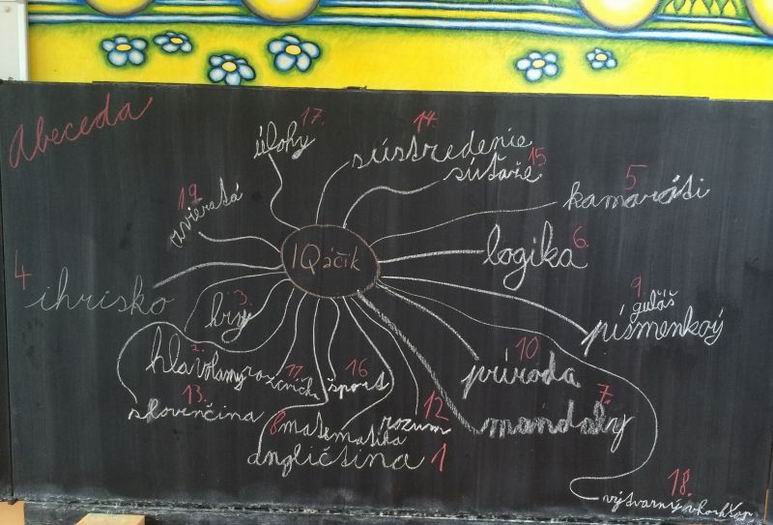 Abeceda
17.
úlohy
14.
sústredenie
15
súťaže
19
zvieratá
5
kamaráti
IQáčik
6.
logika
4
ihrisko
3.
hry
9.
guláš
písmenkový
2.
hlavolamy
11
16
šport
10
príroda
13.
slovenčina
12
rozum
7.
mandaly
8
matematika
angličtina 1
18.
výtvarný workshop